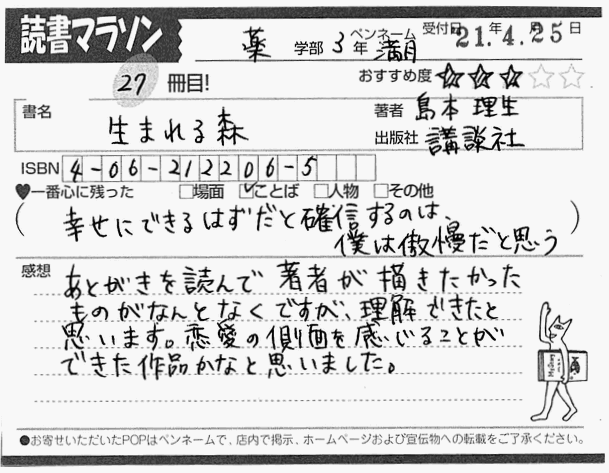 読書マラソン
薬 学部 3年 ペンネーム 満月 受付日 21年4月25日
27 冊目! おすすめ度 ★★★☆☆
書名 生まれる森
著者 島本 理生
出版社 講談社
ISBN 4-06-212206-5
♥一番心に残った □場面 ☑ことば □人物 □その他
(幸せにできるはずだと確信するのは、
僕は傲慢だと思う)
感想
あとがきを読んで著者が描きたかった
ものがなんとなくですが、理解できたと
思います。恋愛の側面を感じることが
できた作品かなと思いました。
●お寄せいただいたPOPはペンネームで、店内で掲示、ホームページおよび宣伝物への転載をご了承ください。